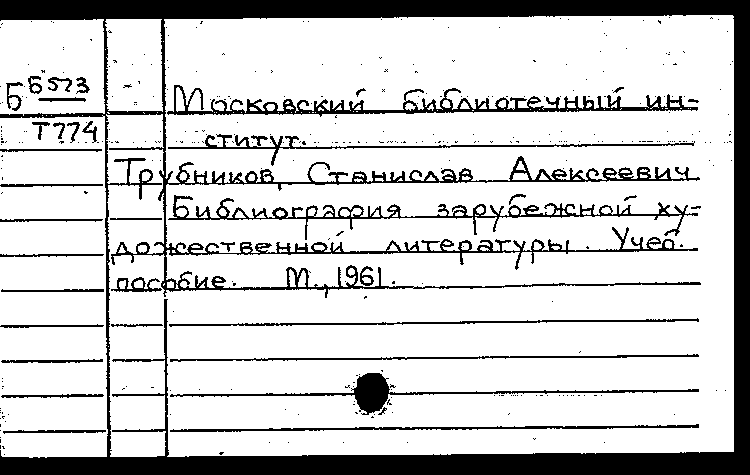 Б Б573
Т774
Московский библиотечный ин-
ститут.
Трубников, Станислав Алексеевич
Библиография зарубежной ху-
дожественной литературы. Учеб.
пособие. М., 1961.